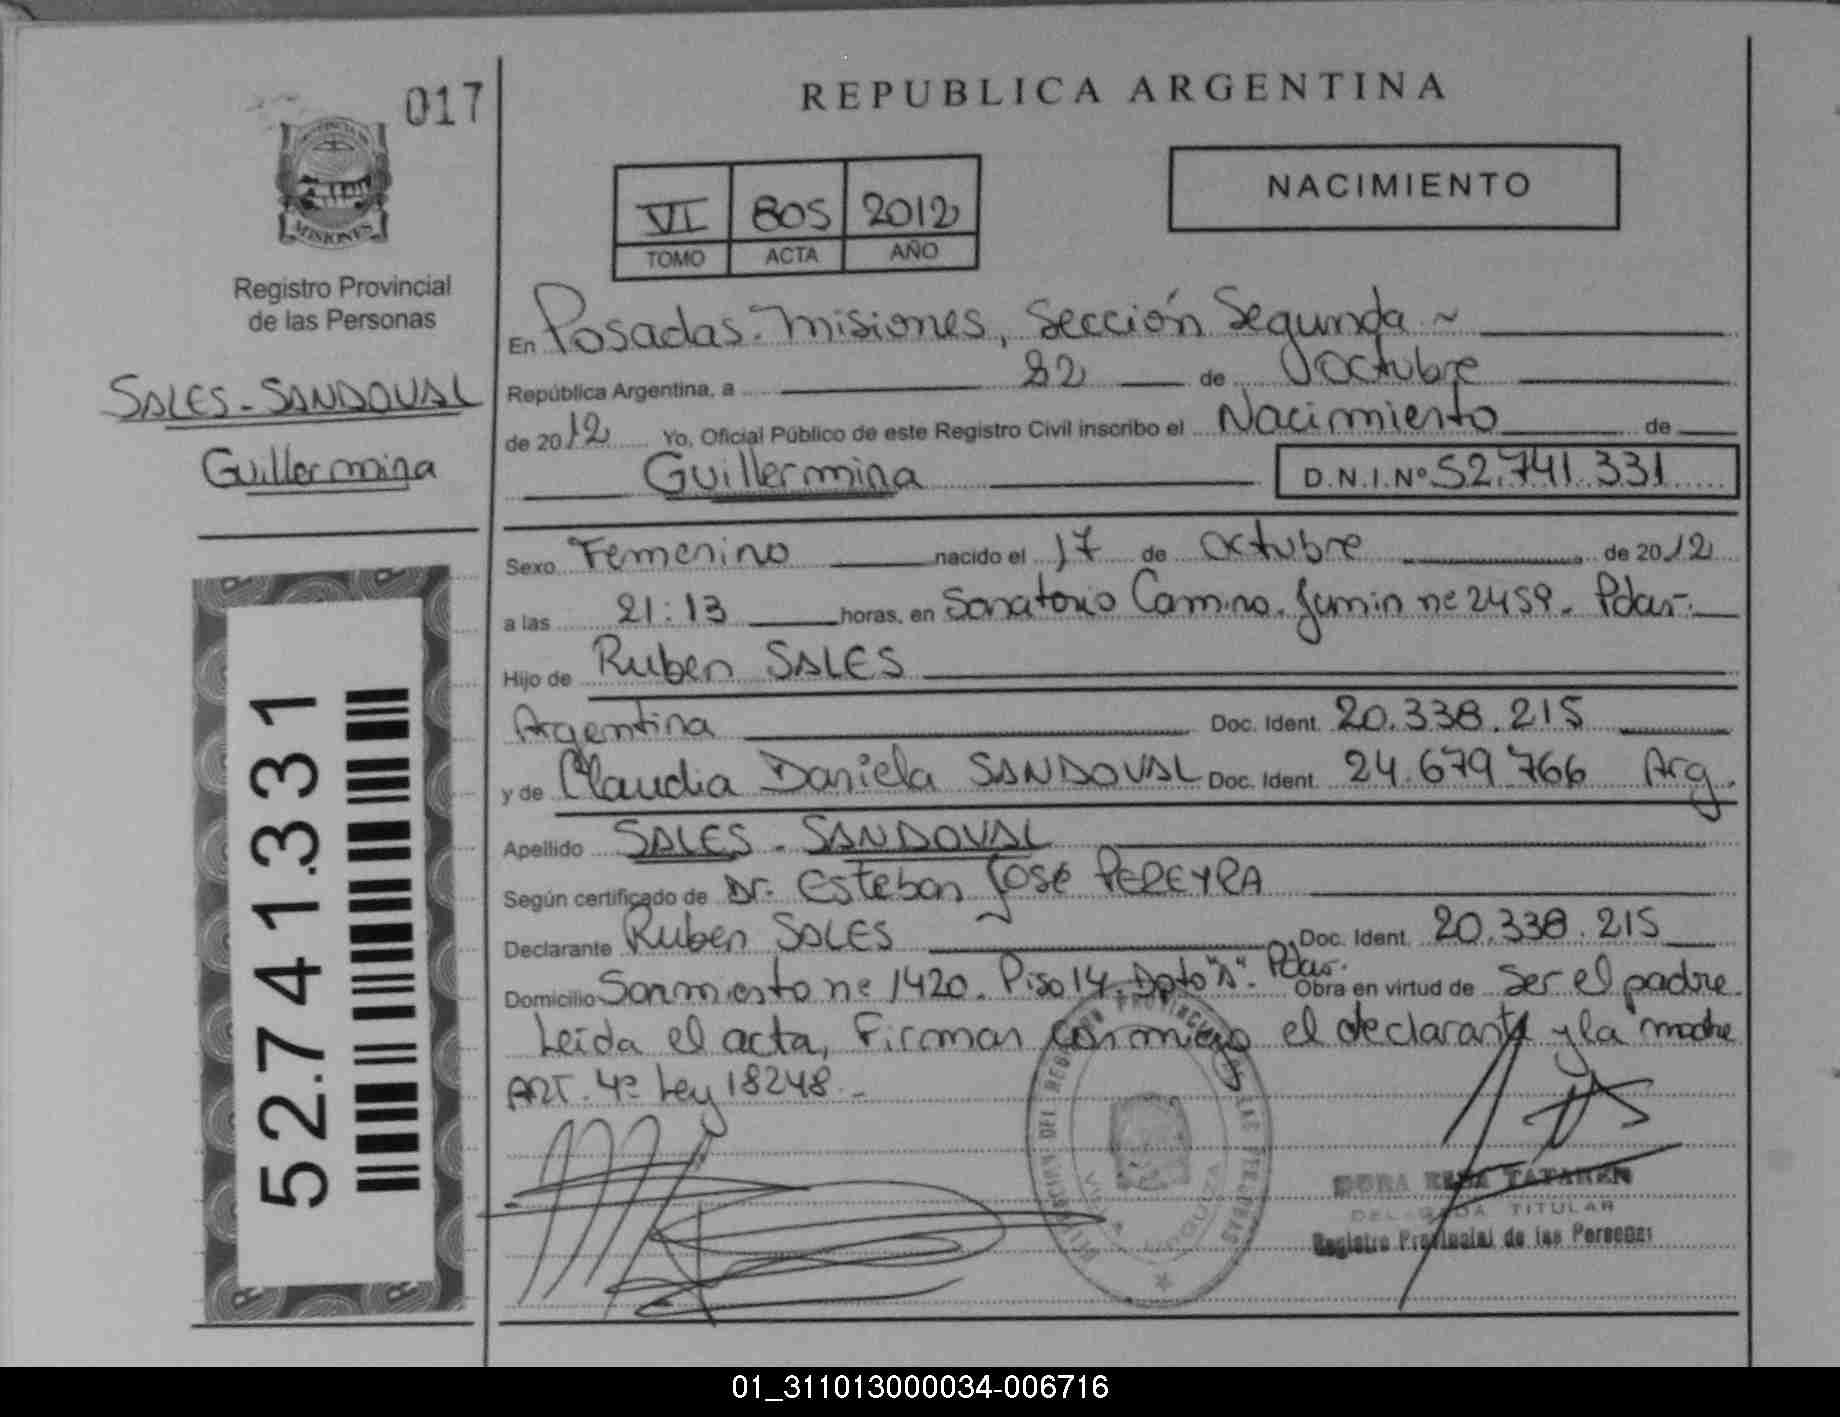 017
REPUBLICA ARGENTINA
NACIMIENTO
VI 805 2012
TOMO ACTA AÑO
MISIONES
Registro Provincial
de las Personas
SALES - SANDOVAL
Guillermina
En Posadas - Misiones, Sección Segunda
República Argentina, a 22 de Octubre
de 2012 Yo, Oficial Público de este Registro Civil inscribo el Nacimiento de
Guillermina D.N.I. Nº 52.741.331
Sexo Femenino nacido el 17 de Octubre de 2012
a las 21:13 horas, en Sanatorio Camino. Junin nº 2459. Pdas.
Hijo de Ruben SALES
Argentina Doc. Ident. 20.338.215
y de Claudia Daniela SANDOVAL Doc. Ident. 24.679.766 Arg.
Apellido SALES - SANDOVAL
Según certificado de Dr. Esteban José PEREYRA
Declarante Ruben SALES Doc. Ident. 20.338.215
Domicilio Sarmiento nº 1420. Piso 14. Dpto "A". Pdas. Obra en virtud de Ser el padre
Leida el acta, Firman conmigo el declarante y la madre
ART. 4º Ley 18248.-
52.741.331
TITULAR
Registro Provincial de las Personas
01_311013000034-006716